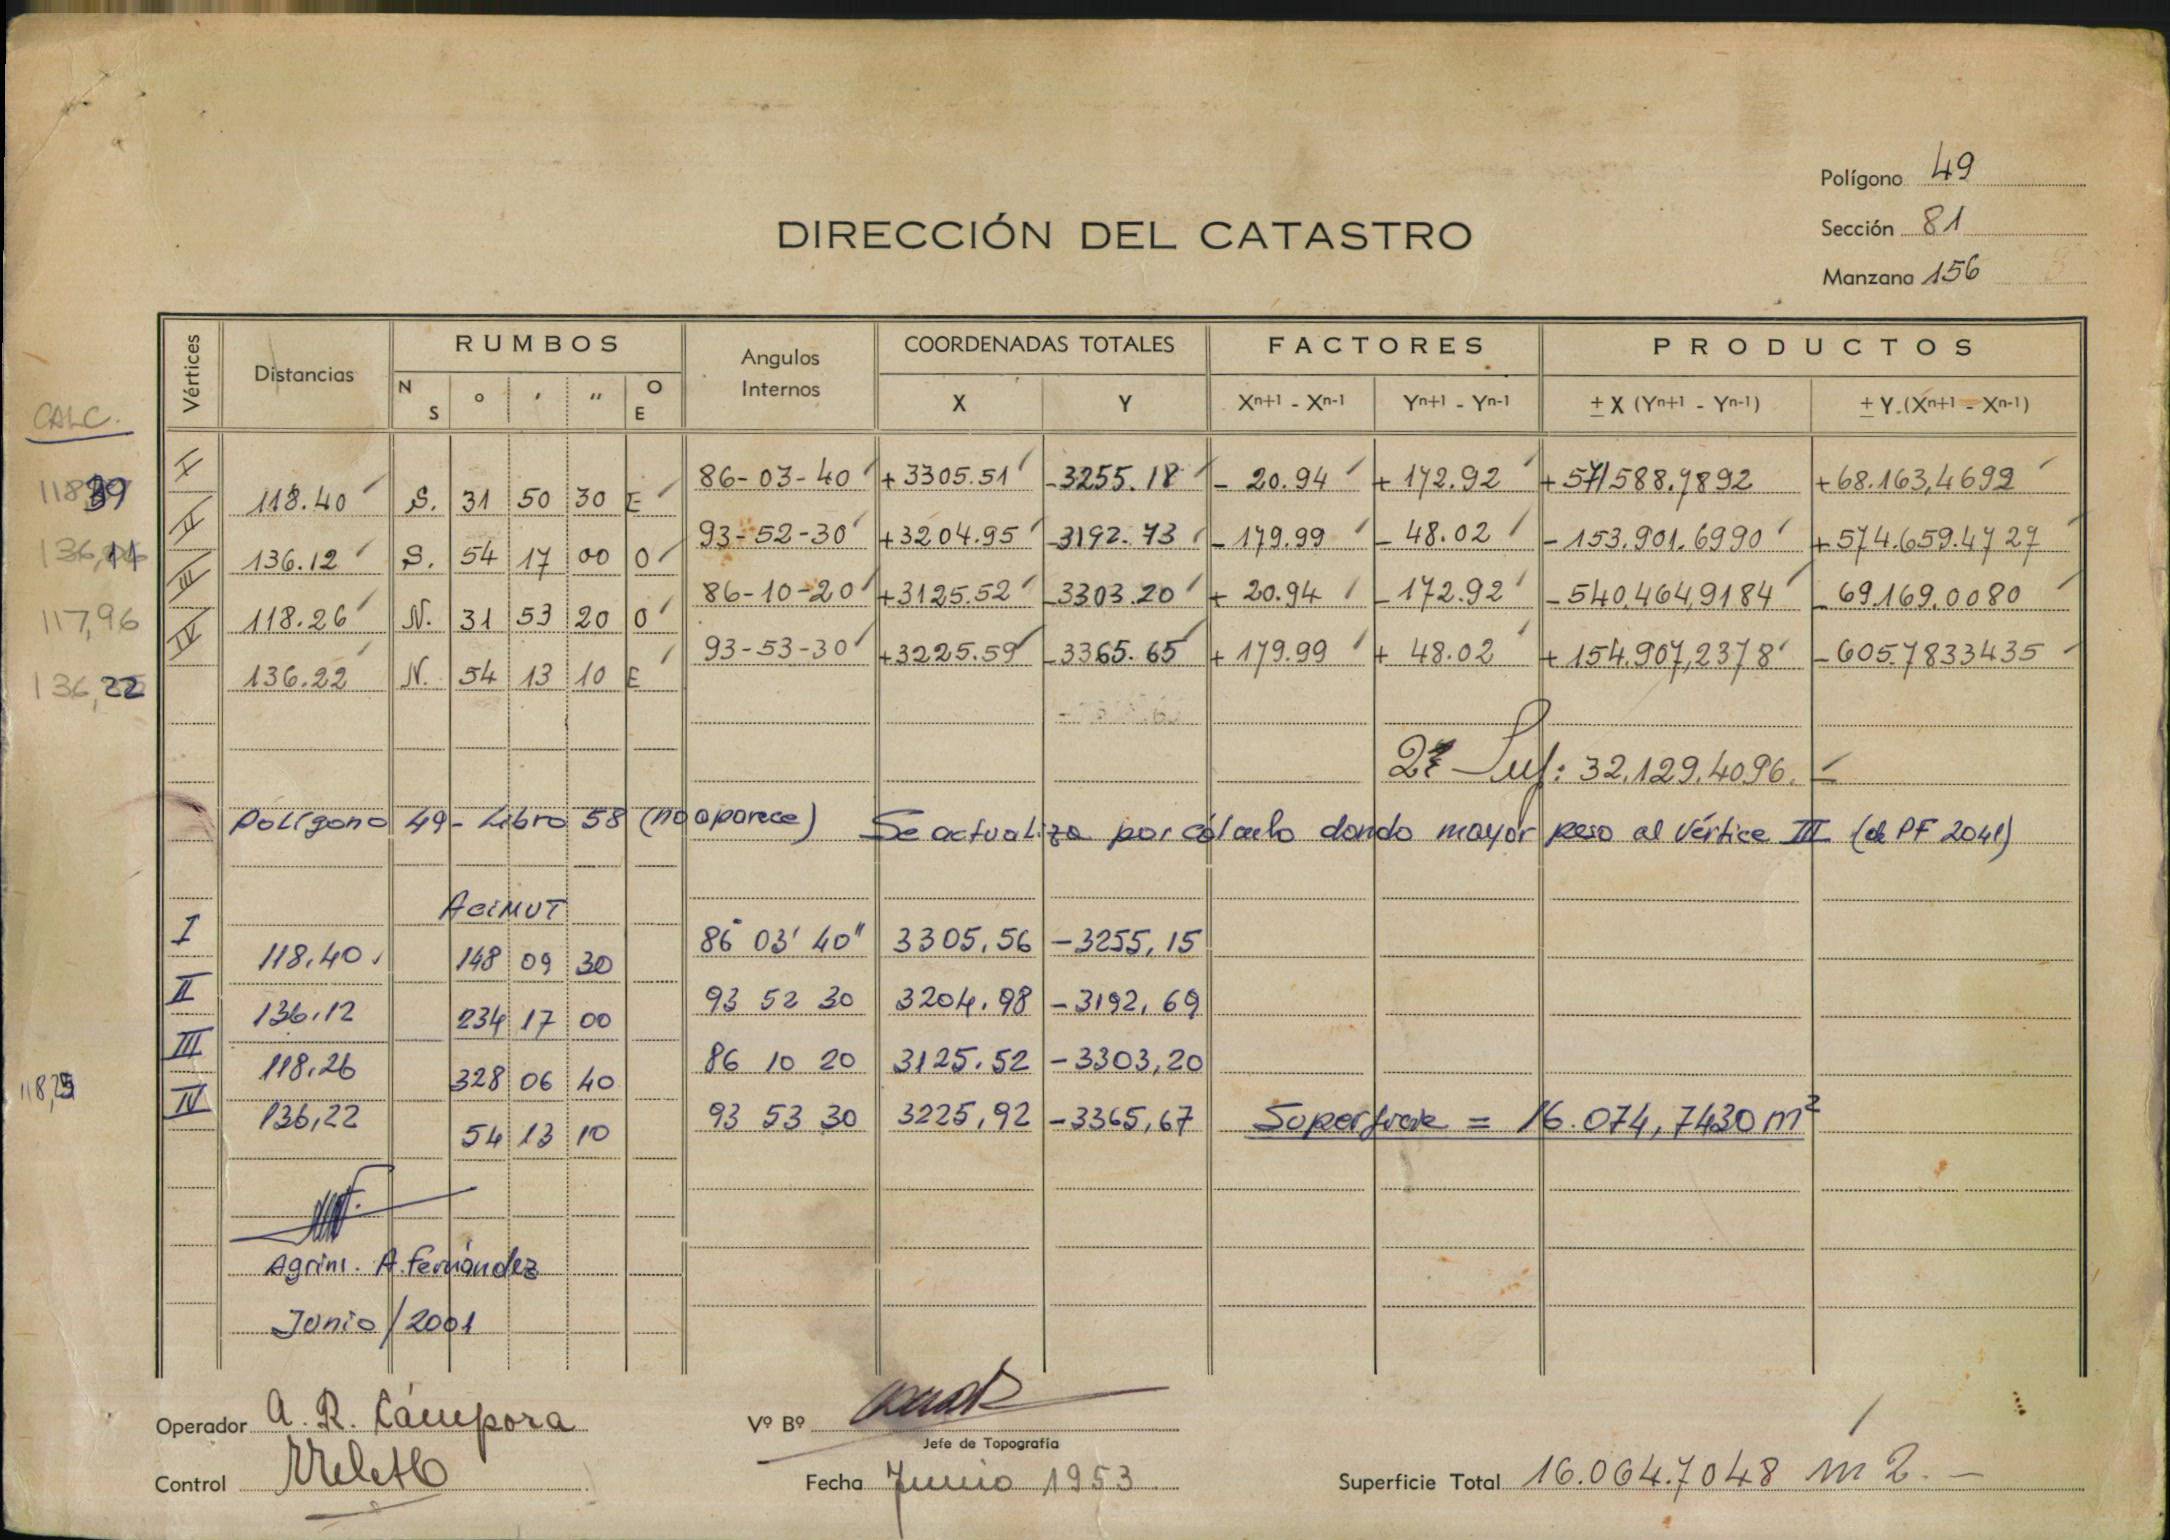 Polígono 49
Sección 81
Manzana 156
DIRECCIÓN DEL CATASTRO
Vértices Distancias RUMBOS Angulos Internos COORDENADAS TOTALES FACTORES PRODUCTOS
N S ° ' " O E X Y Xn+1 - Xn-1 Yn+1 - Yn-1 ± X (Yn+1 - Yn-1) ± Y.(Xn+1 - Xn-1)
CALC.
I 86-03-40 +3305.51 -3255.18 - 20.94 + 172.92 +571588.9892 +68.163,4692
118.40 S. 31 50 30 E
II 93-52-30 +3204.95 -3192.73 - 179.99 - 48.02 -153.901.6990 +574.659.4727
136.12 S. 54 17 00 O
III 86-10-20 +3125.52 -3303.20 + 20.94 - 172.92 -540.464,9184 -69.169.0080
117,96 118.26 N. 31 53 20 O
IV 93-53-30 +3225.59 -3365.65 + 179.99 + 48.02 +154.907,2378 -605.7833435
136,22 136.22 N. 54 13 10 E
Sup: 32.129.4096.
Polígono 49 - Libro 58 (no aparece) Se actualiza por cálculo dando mayor peso al vértice III (de PF 2041)
Acimut
I 86° 03' 40" 3305,56 -3255,15
118,40 148 09 30
II 93 52 30 3204,98 -3192,69
136,12 234 17 00
III 86 10 20 3125,52 -3303,20
118,26 328 06 40
IV 93 53 30 3225,92 -3365,67 Superficie = 16.074,7430 m²
136,22 54 13 10
Agrim. A. Fernández
Junio/2001
Operador A. R. Cámpora Vº Bº
Jefe de Topografía
Control Fecha Junio 1953 Superficie Total 16.064.7048 m2.-